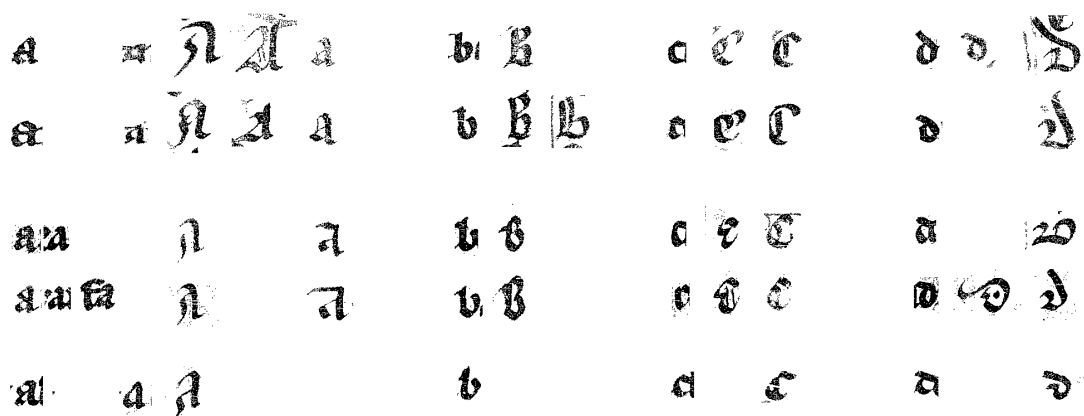 a a A A a b B c C C d d D
a a A A a b B B c C C d D
a a A a b B c C C d D
a a a A a b B c C C d d D
a a A b c C d D